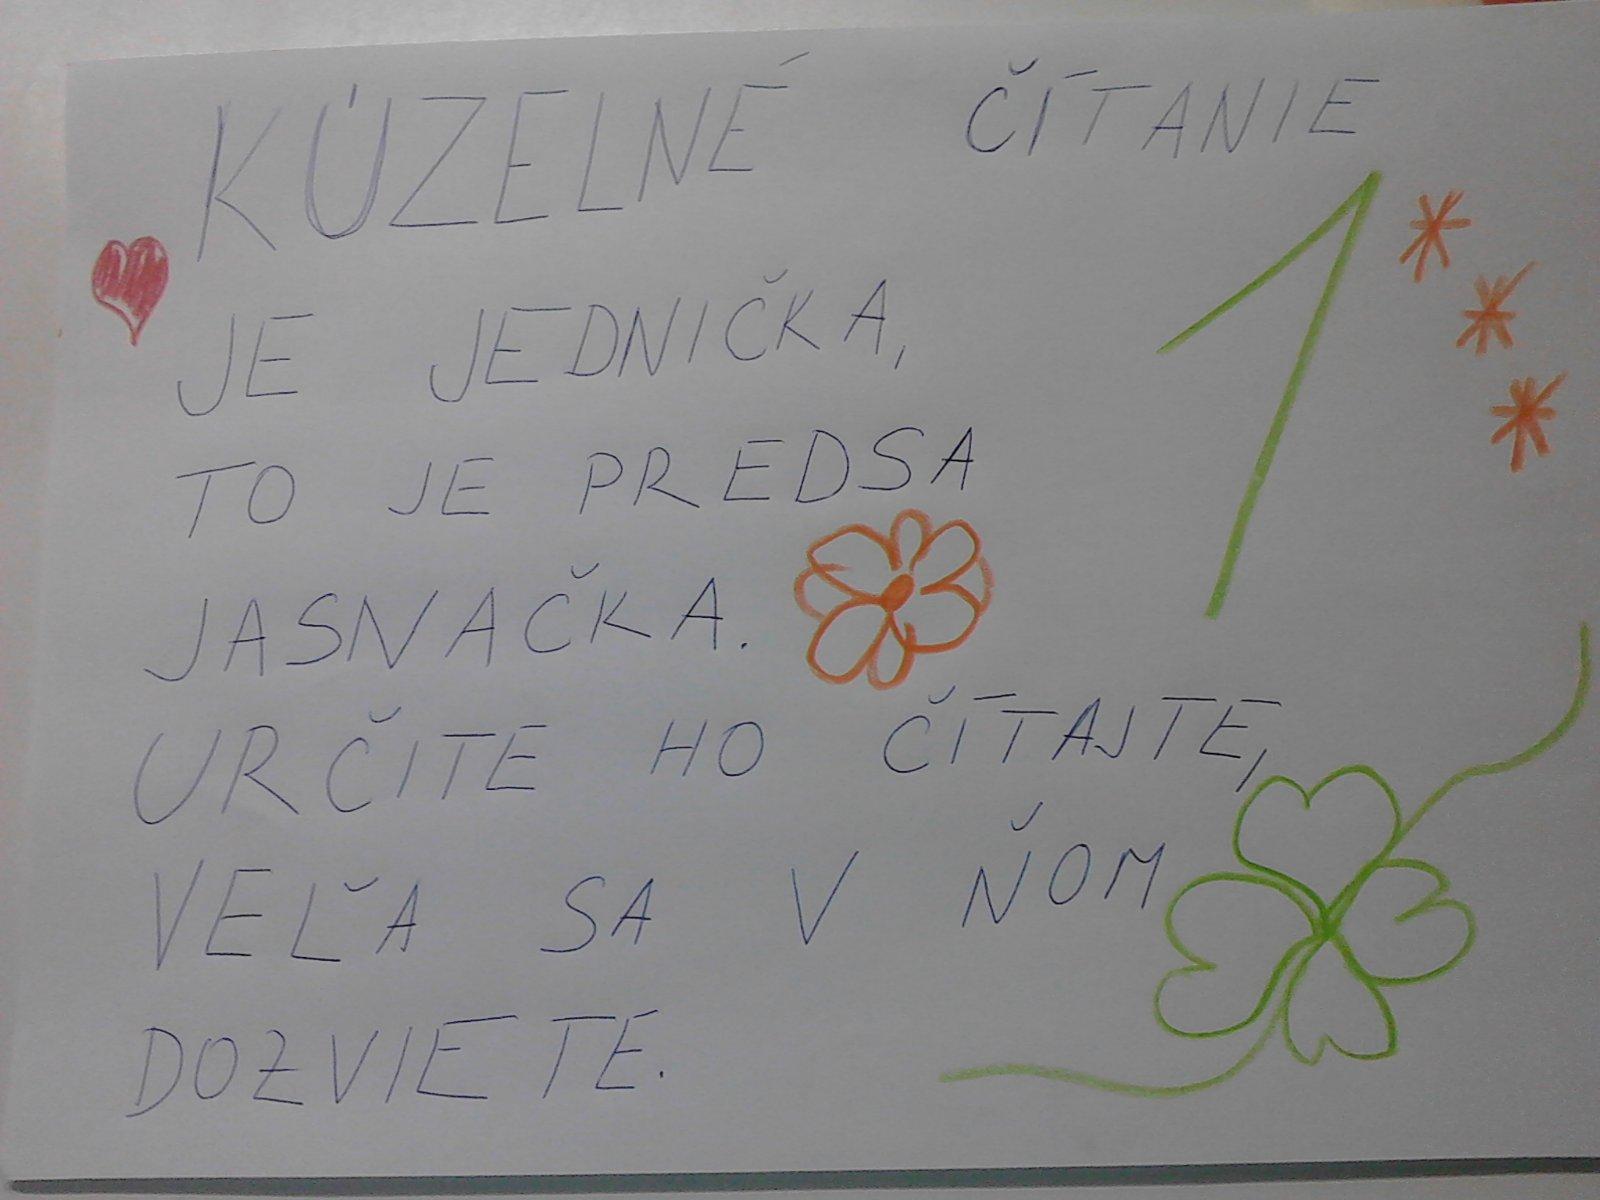 KÚZELNÉ ČÍTANIE
JE JEDNIČKA,
TO JE PREDSA
JASNAČKA.
URČITE HO ČÍTAJTE,
VEĽA SA V ŇOM
DOZVIETE.
1